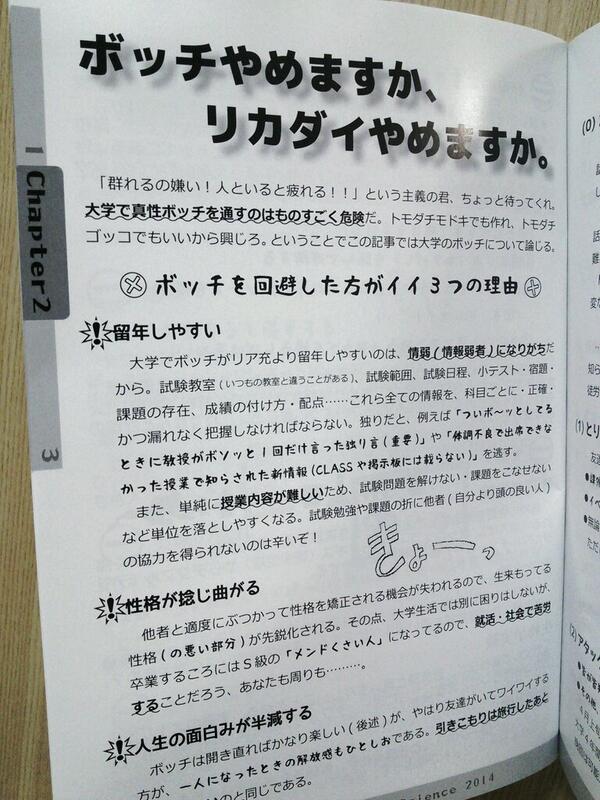 ボッチやめますか、
リカダイやめますか。
「群れるの嫌い！人といると疲れる！！」という主義の君、ちょっと待ってくれ。
大学で真性ボッチを通すのはものすごく危険だ。トモダチモドキでも作れ、トモダチ
ゴッコでもいいから興じろ。ということでこの記事では大学のボッチについて論じる。
1
Chapter2
3
ボッチを回避した方がイイ3つの理由
留年しやすい
大学でボッチがリア充より留年しやすいのは、情弱(情報弱者)になりがちだ
から。試験教室(いつもの教室と違うことがある)、試験範囲、試験日程、小テスト・宿題・
課題の存在、成績の付け方・配点……これら全ての情報を、科目ごとに・正確・
かつ漏れなく把握しなければならない。独りだと、例えば「ついボ～ッとしてる
ときに教授がボソッと1回だけ言った独り言(重要)」や「体調不良で出席できな
かった授業で知らされた新情報(CLASSや掲示板には載らない)」を逃す。
また、単純に授業内容が難しいため、試験問題を解けない・課題をこなせない
など単位を落としやすくなる。試験勉強や課題の折に他者(自分より頭の良い人)
の協力を得られないのは辛いぞ！
きょーっ
性格が捻じ曲がる
他者と適度にぶつかって性格を矯正される機会が失われるので、生来もってる
性格(の悪い部分)が先鋭化される。その点、大学生活では別に困りはしないが、
卒業するころにはS級の「メンドくさい人」になってるので、就活・社会で苦労
することだろう、あなたも周りも………。
人生の面白みが半減する
ボッチは開き直ればかなり楽しい(後述)が、やはり友達がいてワイワイする
方が、一人になったときの解放感もひとしおである。引きこもりは旅行したあと
のと同じである。
Science 2014